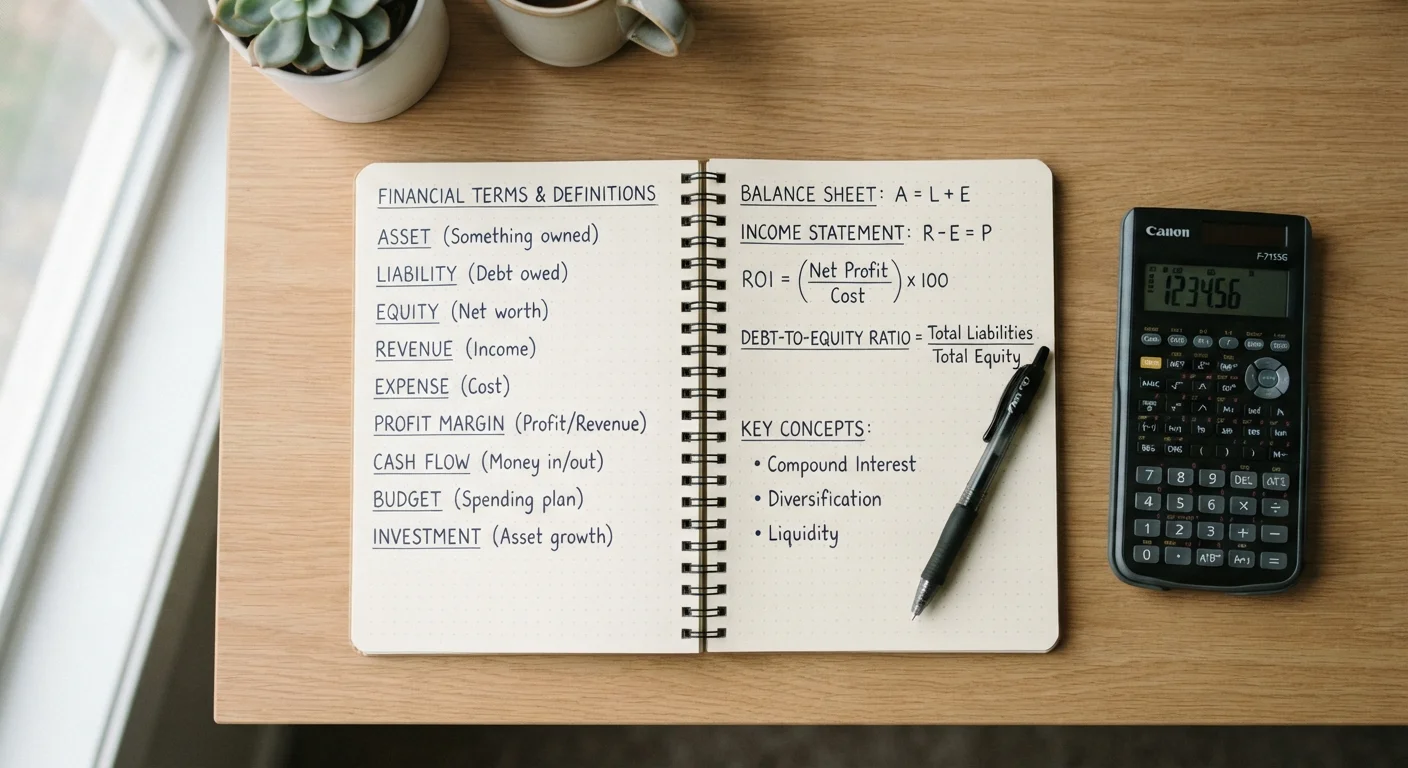 FINANCIAL TERMS & DEFINITIONS
ASSET (Something owned)
LIABILITY (Debt owed)
EQUITY (Net worth)
REVENUE (Income)
EXPENSE (Cost)
PROFIT MARGIN (Profit/Revenue)
CASH FLOW (Money in/out)
BUDGET (Spending plan)
INVESTMENT (Asset growth)
BALANCE SHEET: A = L + E
INCOME STATEMENT: R - E = P
ROI = (Net Profit / Cost) × 100
DEBT-TO-EQUITY RATIO = Total Liabilities / Total Equity
KEY CONCEPTS:
• Compound Interest
• Diversification
• Liquidity
Canon
F-715SG
123456
7 8 9 DEL
4 5 6 × ÷
1 2 3 + −
0 . =